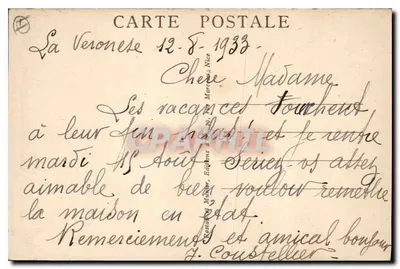 CARTE POSTALE
La Veronese 12-8-1933.
Chere Madame
Les vacances touchent
à leur fin hélas! et je rentre
mardi 15 Août Seriez vs assez
aimable de bien vouloir remettre
la maison en état.
Remerciements et amical bonjour
J. Coustellier